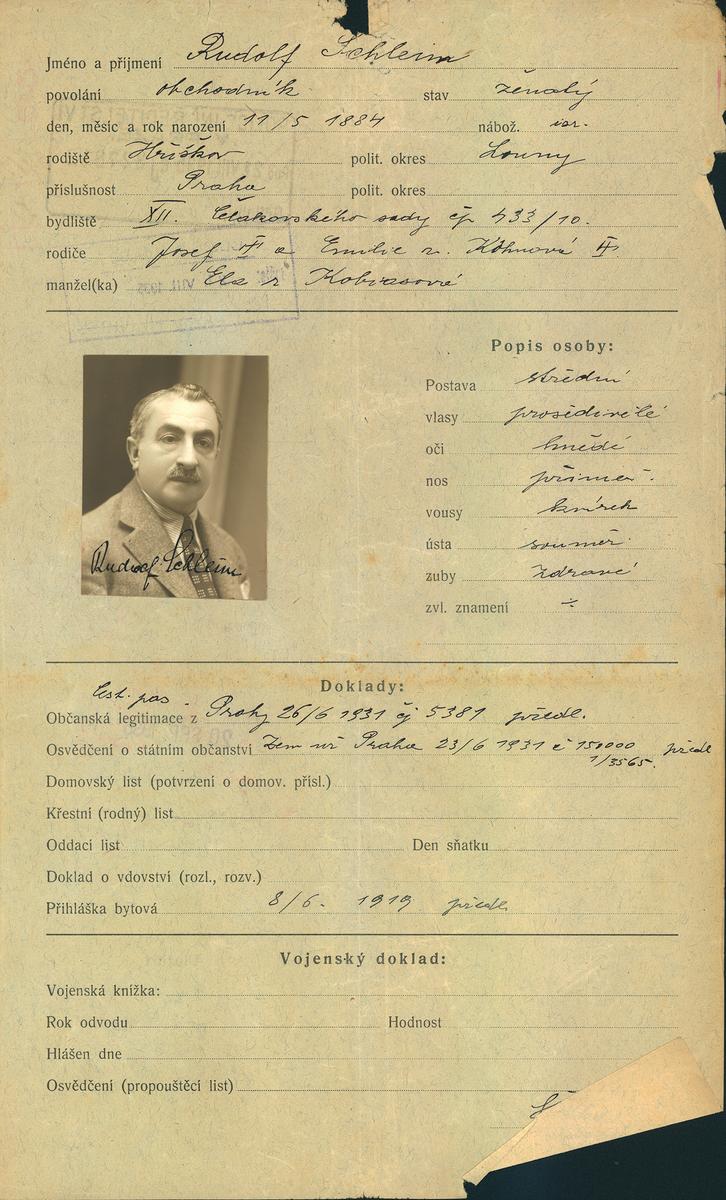 Jméno a příjmení Rudolf Schleim
povolání obchodník stav ženatý
den, měsíc a rok narození 11/5 1884 nábož. isr.
rodiště Hříškov polit. okres Louny
příslušnost Praha polit. okres
bydliště XII. Čelakovského sady čp 433/10.
rodiče Josef a Emilie r. Köhnová
manžel(ka) Ela r
Popis osoby:
Postava střední
vlasy prošedivělé
oči hnědé
nos přiměř.
vousy knírek
ústa souměr.
zuby zdravé
zvl. znamení ÷
Rudolf Schleim
Doklady:
cest. pas
Občanská legitimace z Prahy 26/6 1931 čj 5381 předl.
Osvědčení o státním občanství Zem úř Praha 23/6 1931 č 150000 předl
1/3565.
Domovský list (potvrzení o domov. přísl.)
Křestní (rodný) list
Oddací list Den sňatku
Doklad o vdovství (rozl., rozv.)
Přihláška bytová 8/6. 1919 předl.
Vojenský doklad:
Vojenská knížka:
Rok odvodu Hodnost
Hlášen dne
Osvědčení (propouštěcí list)